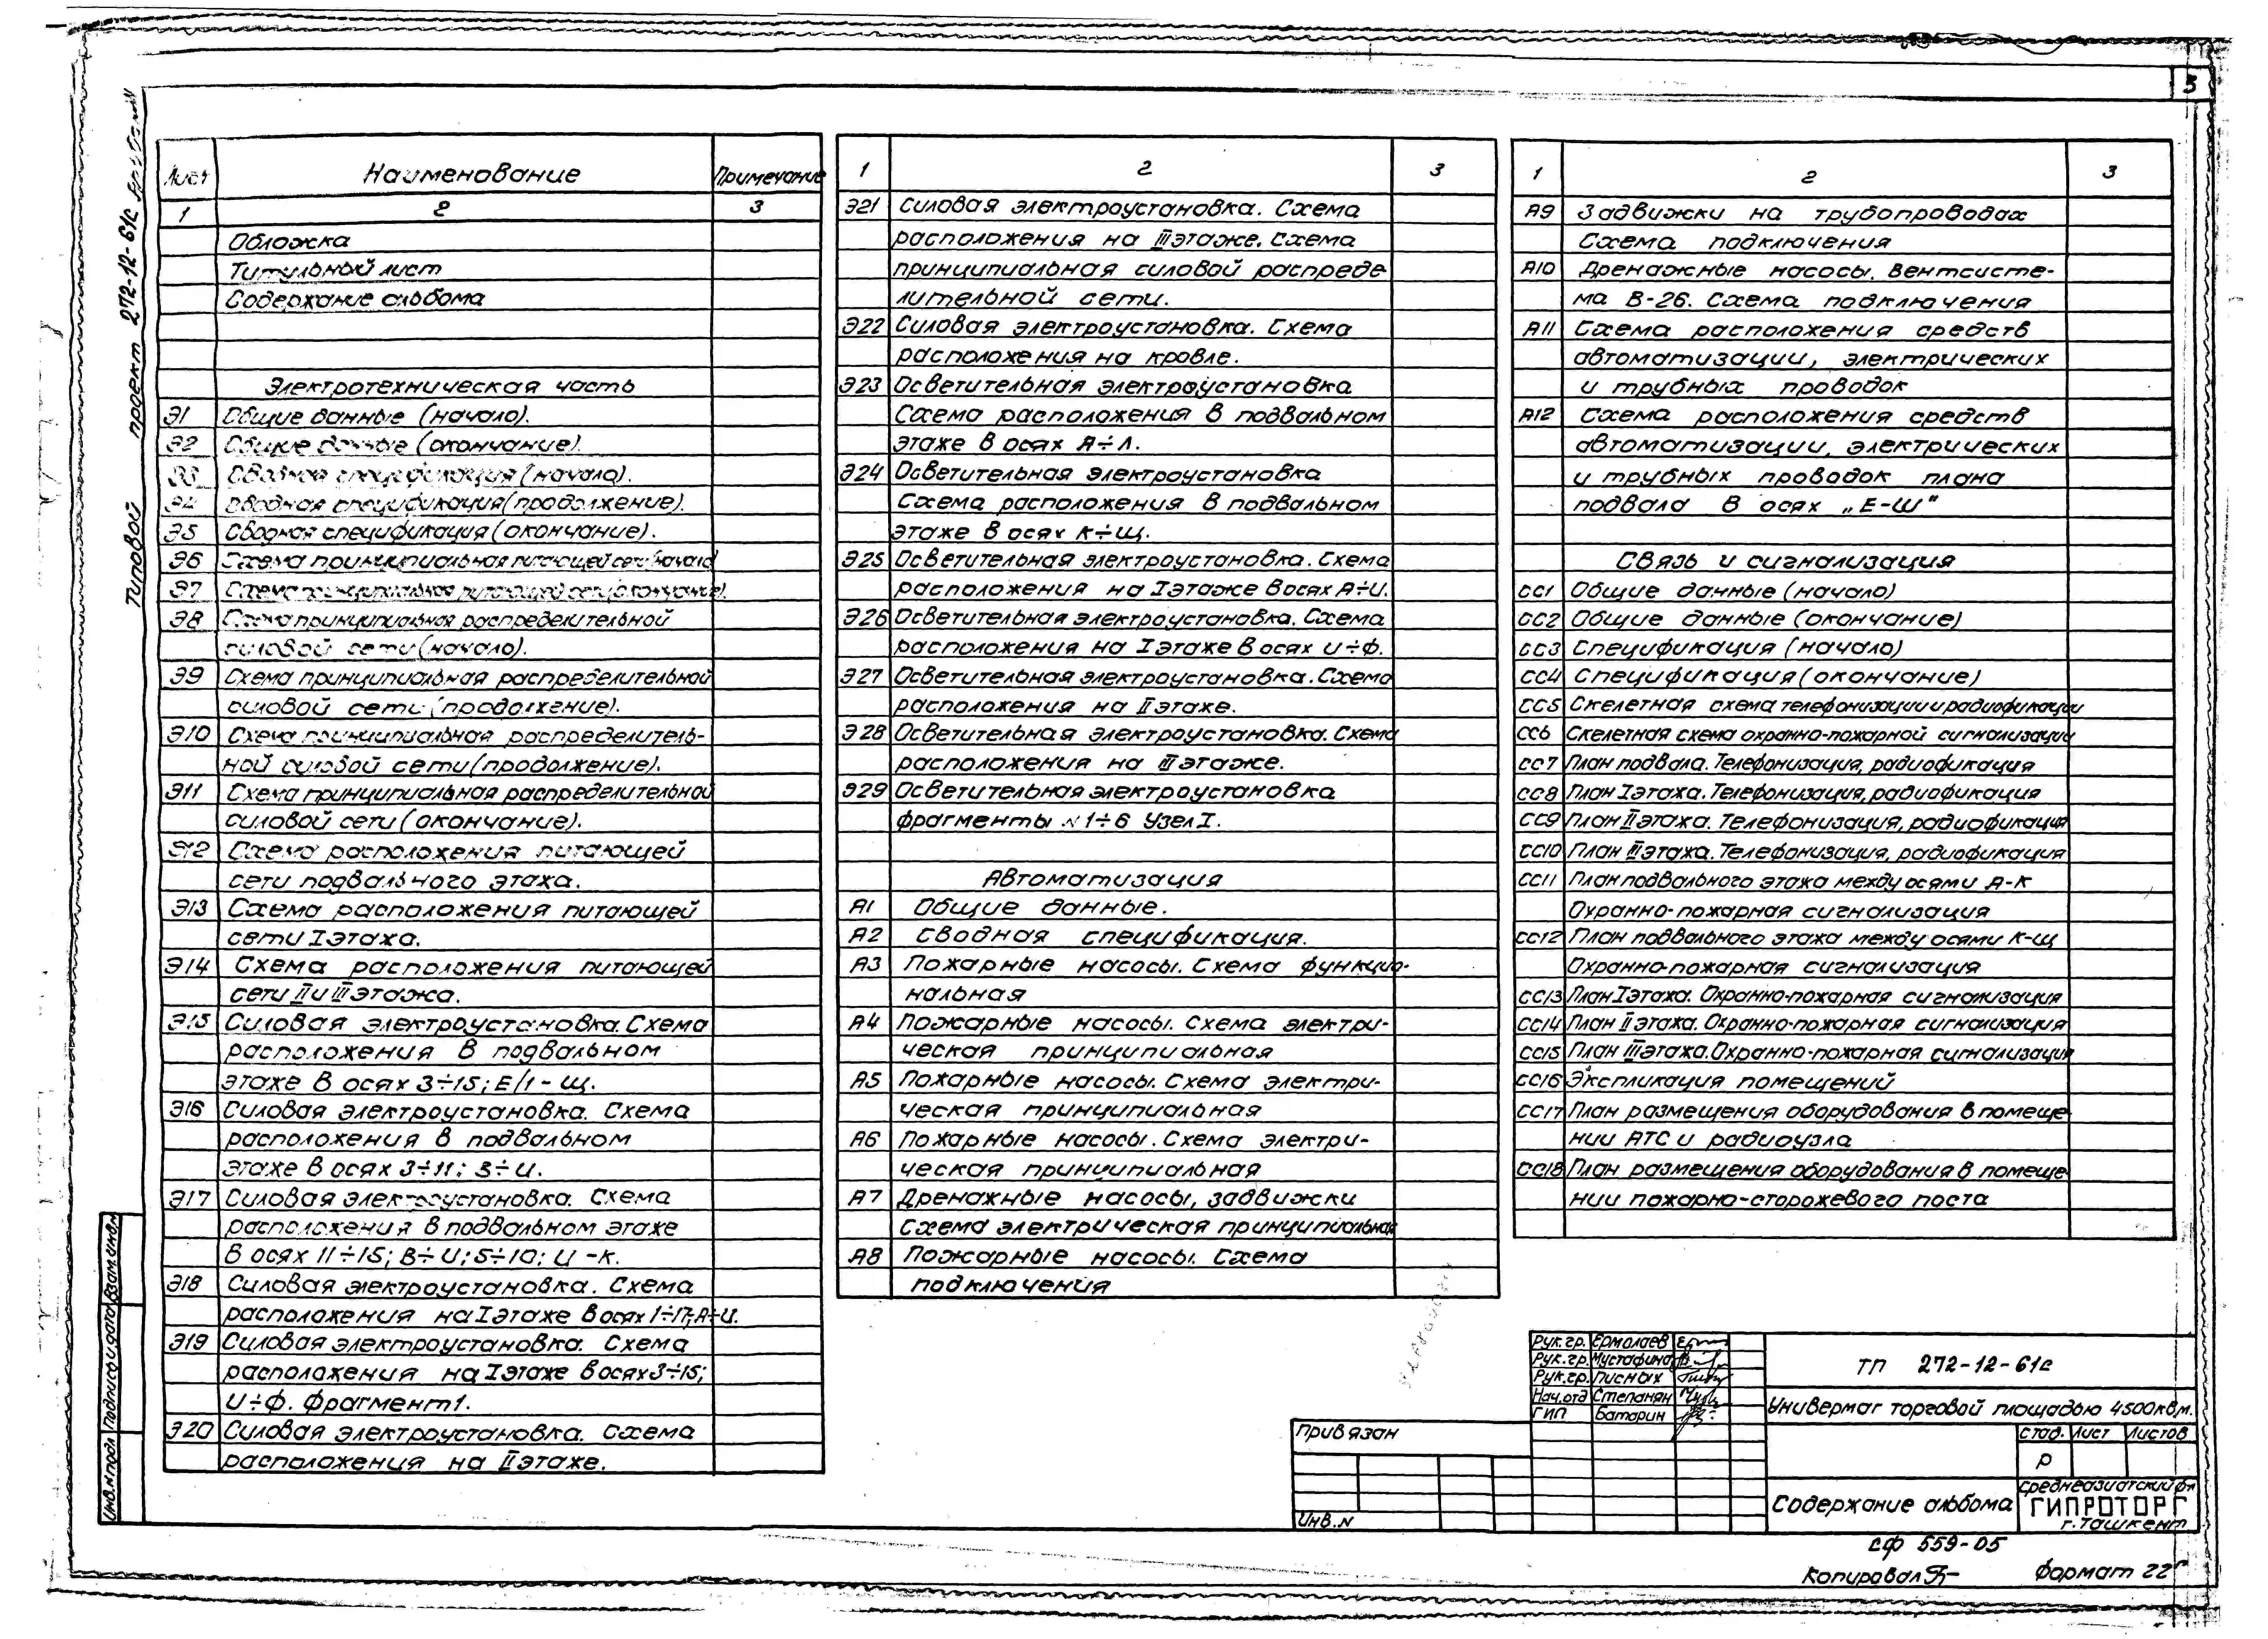 3
Типовой проект 272-12-61с
Лист Наименование Примечание
1 2 3
Обложка
Титульный лист
Содержание альбома
Электротехническая часть
Э1 Общие данные (начало).
Э2 Общие данные (окончание).
Э3 Сводная спецификация (начало).
Э4 Сводная спецификация (продолжение).
Э5 Сводная спецификация (окончание).
Э6 Схема принципиальная питающей сети (начало)
Э7 Схема принципиальная питающей сети (окончание).
Э8 Схема принципиальная распределительной
силовой сети (начало).
Э9 Схема принципиальная распределительной
силовой сети (продолжение).
Э10 Схема принципиальная распределитель-
ной силовой сети (продолжение).
Э11 Схема принципиальная распределительной
силовой сети (окончание).
Э12 Схема расположения питающей
сети подвального этажа.
Э13 Схема расположения питающей
сети I этажа.
Э14 Схема расположения питающей
сети II и III этажа.
Э15 Силовая электроустановка. Схема
расположения в подвальном
этаже в осях 3÷15; Е/1 - Щ.
Э16 Силовая электроустановка. Схема
расположения в подвальном
этаже в осях 3÷11; Б÷И.
Э17 Силовая электроустановка. Схема
расположения в подвальном этаже
в осях 11÷15; В÷И; 5÷10; И-К.
Э18 Силовая электроустановка. Схема
расположения на I этаже в осях 1÷17; А÷И.
Э19 Силовая электроустановка. Схема
расположения на I этаже в осях 3÷15;
И÷Ф. Фрагмент 1.
Э20 Силовая электроустановка. Схема
расположения на II этаже.
1 2 3
Э21 Силовая электроустановка. Схема
расположения на III этаже. Схема
принципиальная силовой распреде-
лительной сети.
Э22 Силовая электроустановка. Схема
расположения на кровле.
Э23 Осветительная электроустановка
Схема расположения в подвальном
этаже в осях А÷Л.
Э24 Осветительная электроустановка
Схема расположения в подвальном
этаже в осях К÷Щ.
Э25 Осветительная электроустановка. Схема
расположения на I этаже в осях А÷И.
Э26 Осветительная электроустановка. Схема
расположения на I этаже в осях И÷Ф.
Э27 Осветительная электроустановка. Схема
расположения на II этаже.
Э28 Осветительная электроустановка. Схема
расположения на III этаже.
Э29 Осветительная электроустановка
фрагменты N 1÷6 Узел I.
Автоматизация
А1 Общие данные.
А2 Сводная спецификация.
А3 Пожарные насосы. Схема функцио-
нальная
А4 Пожарные насосы. Схема электри-
ческая принципиальная
А5 Пожарные насосы. Схема электри-
ческая принципиальная
А6 Пожарные насосы. Схема электри-
ческая принципиальная
А7 Дренажные насосы, задвижки
Схема электрическая принципиальная
А8 Пожарные насосы. Схема
подключения
1 2 3
А9 Задвижки на трубопроводах
Схема подключения
А10 Дренажные насосы. Вентсисте-
ма В-26. Схема подключения
А11 Схема расположения средств
автоматизации, электрических
и трубных проводок
А12 Схема расположения средств
автоматизации, электрических
и трубных проводок плана
подвала в осях „Е-Ш"
Связь и сигнализация
СС1 Общие данные (начало)
СС2 Общие данные (окончание)
СС3 Спецификация (начало)
СС4 Спецификация (окончание)
СС5 Скелетная схема телефонизации и радиофикации
СС6 Скелетная схема охранно-пожарной сигнализации
СС7 План подвала. Телефонизация, радиофикация
СС8 План I этажа. Телефонизация, радиофикация
СС9 План II этажа. Телефонизация, радиофикация
СС10 План III этажа. Телефонизация, радиофикация
СС11 План подвального этажа между осями А-К
Охранно-пожарная сигнализация
СС12 План подвального этажа между осями К-Щ
Охранно-пожарная сигнализация
СС13 План I этажа. Охранно-пожарная сигнализация
СС14 План II этажа. Охранно-пожарная сигнализация
СС15 План III этажа. Охранно-пожарная сигнализация
СС16 Экспликация помещений
СС17 План размещения оборудования в помеще-
нии АТС и радиоузла
СС18 План размещения оборудования в помеще
нии пожарно-сторожевого поста
Рук. гр. Ермолаев
Рук. гр. Мустафина
Рук. гр. Писных
Нач. отд Степанян
ГИП Батарин
ТП 272-12-61с
Универмаг торговой площадью 4500 кв.м.
Стад. Лист Листов
Р
Содержание альбома
Среднеазиатский фл
ГИПРОТОРГ
г. Ташкент
Привязан
Инв. N
Инв. N подл Подпись и дата Взам. инв. N
СФ 559-05
Копировал
Формат 22г